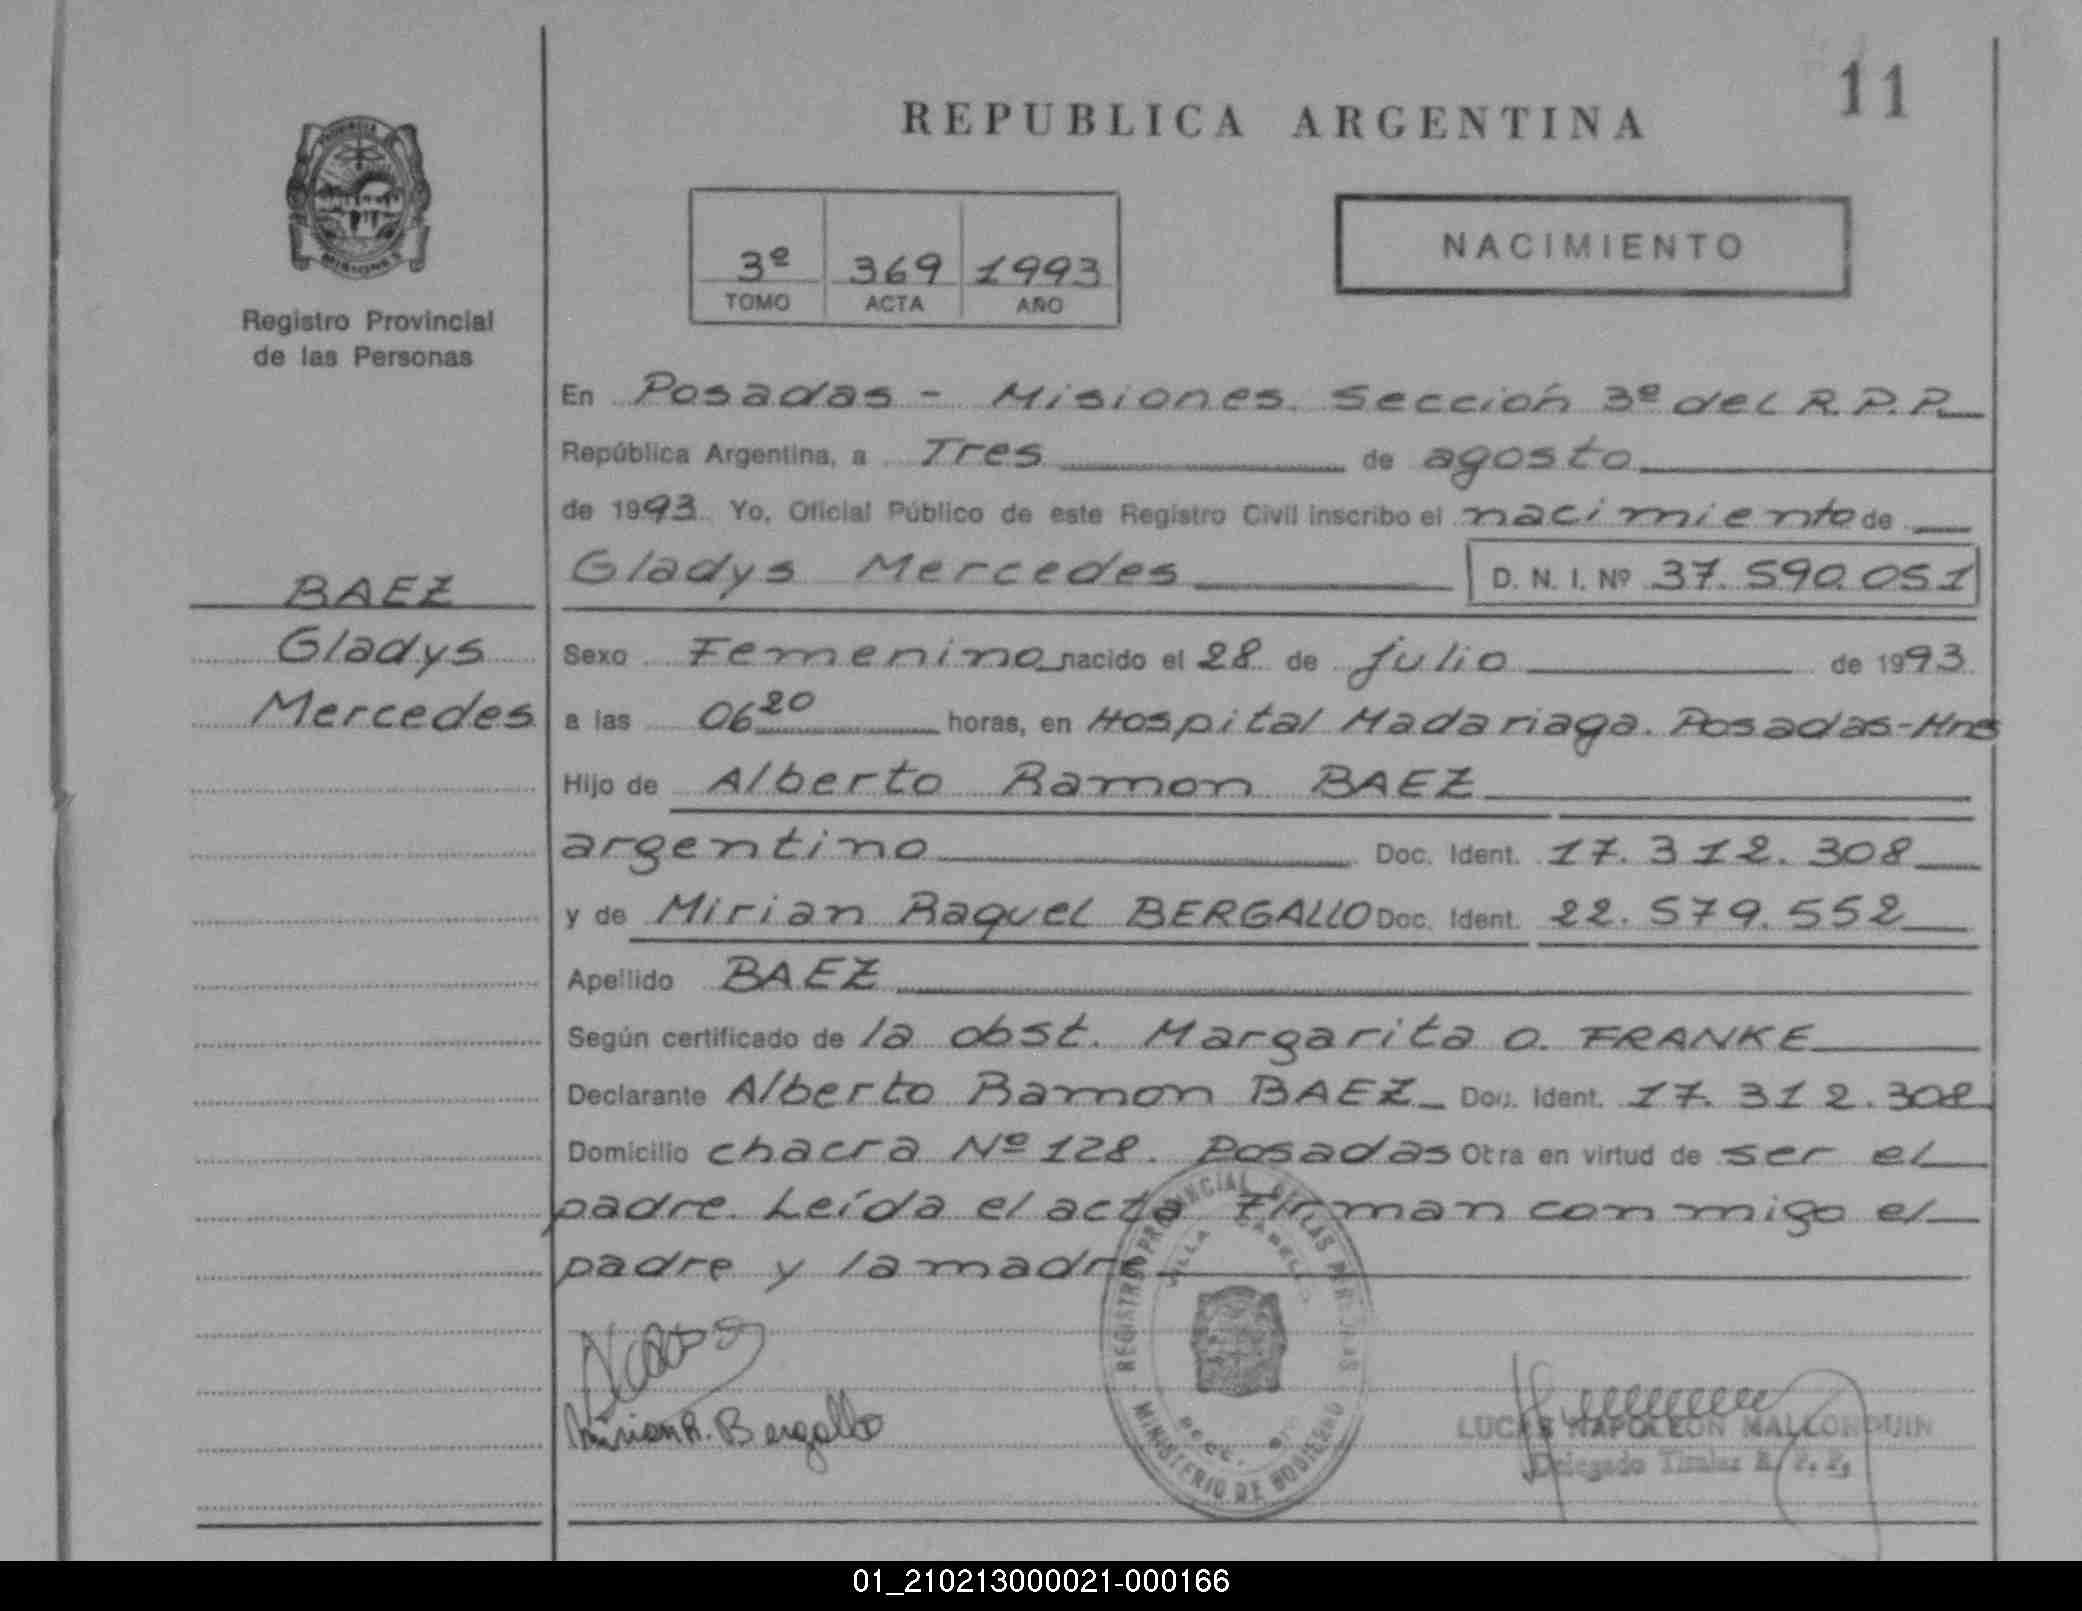 11
REPUBLICA ARGENTINA
PROVINCIA
MISIONES
Registro Provincial
de las Personas
3º 369 1993
TOMO ACTA AÑO
NACIMIENTO
En Posadas - Misiones. Sección 3º del R.P.P.
República Argentina, a Tres de agosto
de 1993 Yo, Oficial Público de este Registro Civil inscribo el nacimiento de
BAEZ
Gladys
Mercedes
Gladys Mercedes D. N. I. Nº 37.590.051
Sexo Femenino nacido el 28 de julio de 1993
a las 06 20 horas, en Hospital Madariaga. Posadas-Mnes
Hijo de Alberto Ramon BAEZ
argentino Doc. Ident. 17.312.308
y de Mirian Raquel BERGALLO Doc. Ident. 22.579.552
Apellido BAEZ
Según certificado de la obst. Margarita O. FRANKE
Declarante Alberto Ramon BAEZ Doc. Ident. 17.312.308
Domicilio chacra Nº 128. Posadas Obra en virtud de ser el
padre. Leída el acta Firman conmigo el
padre y la madre
REGISTRO PROVINCIAL DE LAS PERSONAS
VILLA CABELLO
MINISTERIO DE GOBIERNO
Mirian R. Bergallo
LUCAS NAPOLEON MALLONQUIN
Delegado Titular R. P. P.
01_210213000021-000166